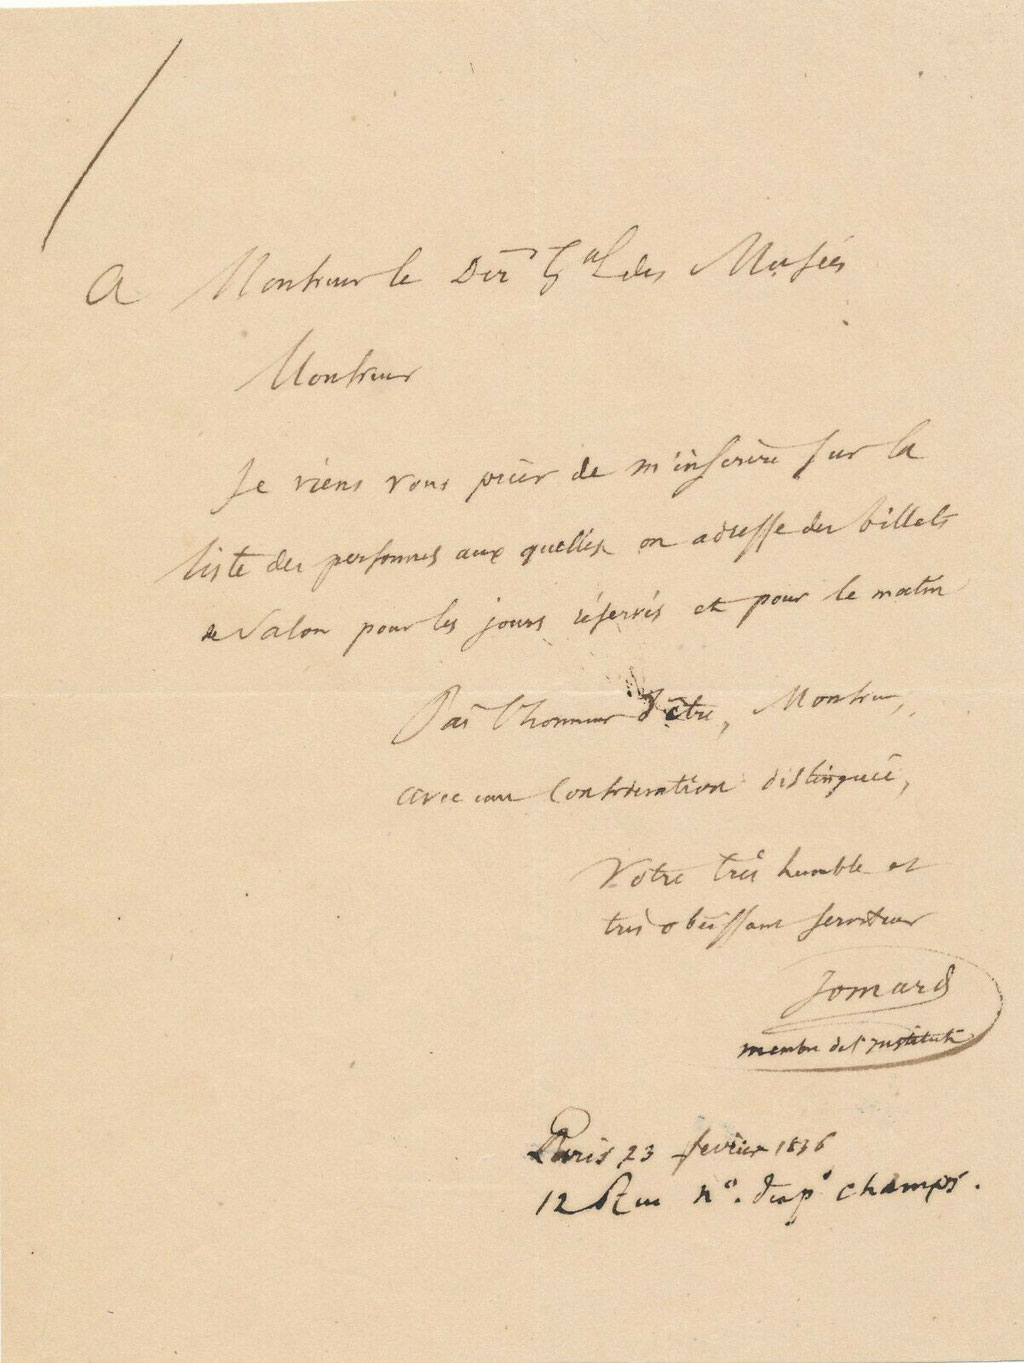 A Monsieur le Dir Gal des Musées
Monsieur
Je viens vous prier de m'inscrire sur la
liste des personnes aux quelles on adresse des billets
de salon pour les jours réservés et pour le matin
J'ai l'honneur d'être, Monsieur,
avec une Considération distinguée,
Votre très humble et
très obéissant serviteur
Jomard
membre de l'Institut
Paris 23 fevrier 1836
12 Rue Ne. des pts champs.